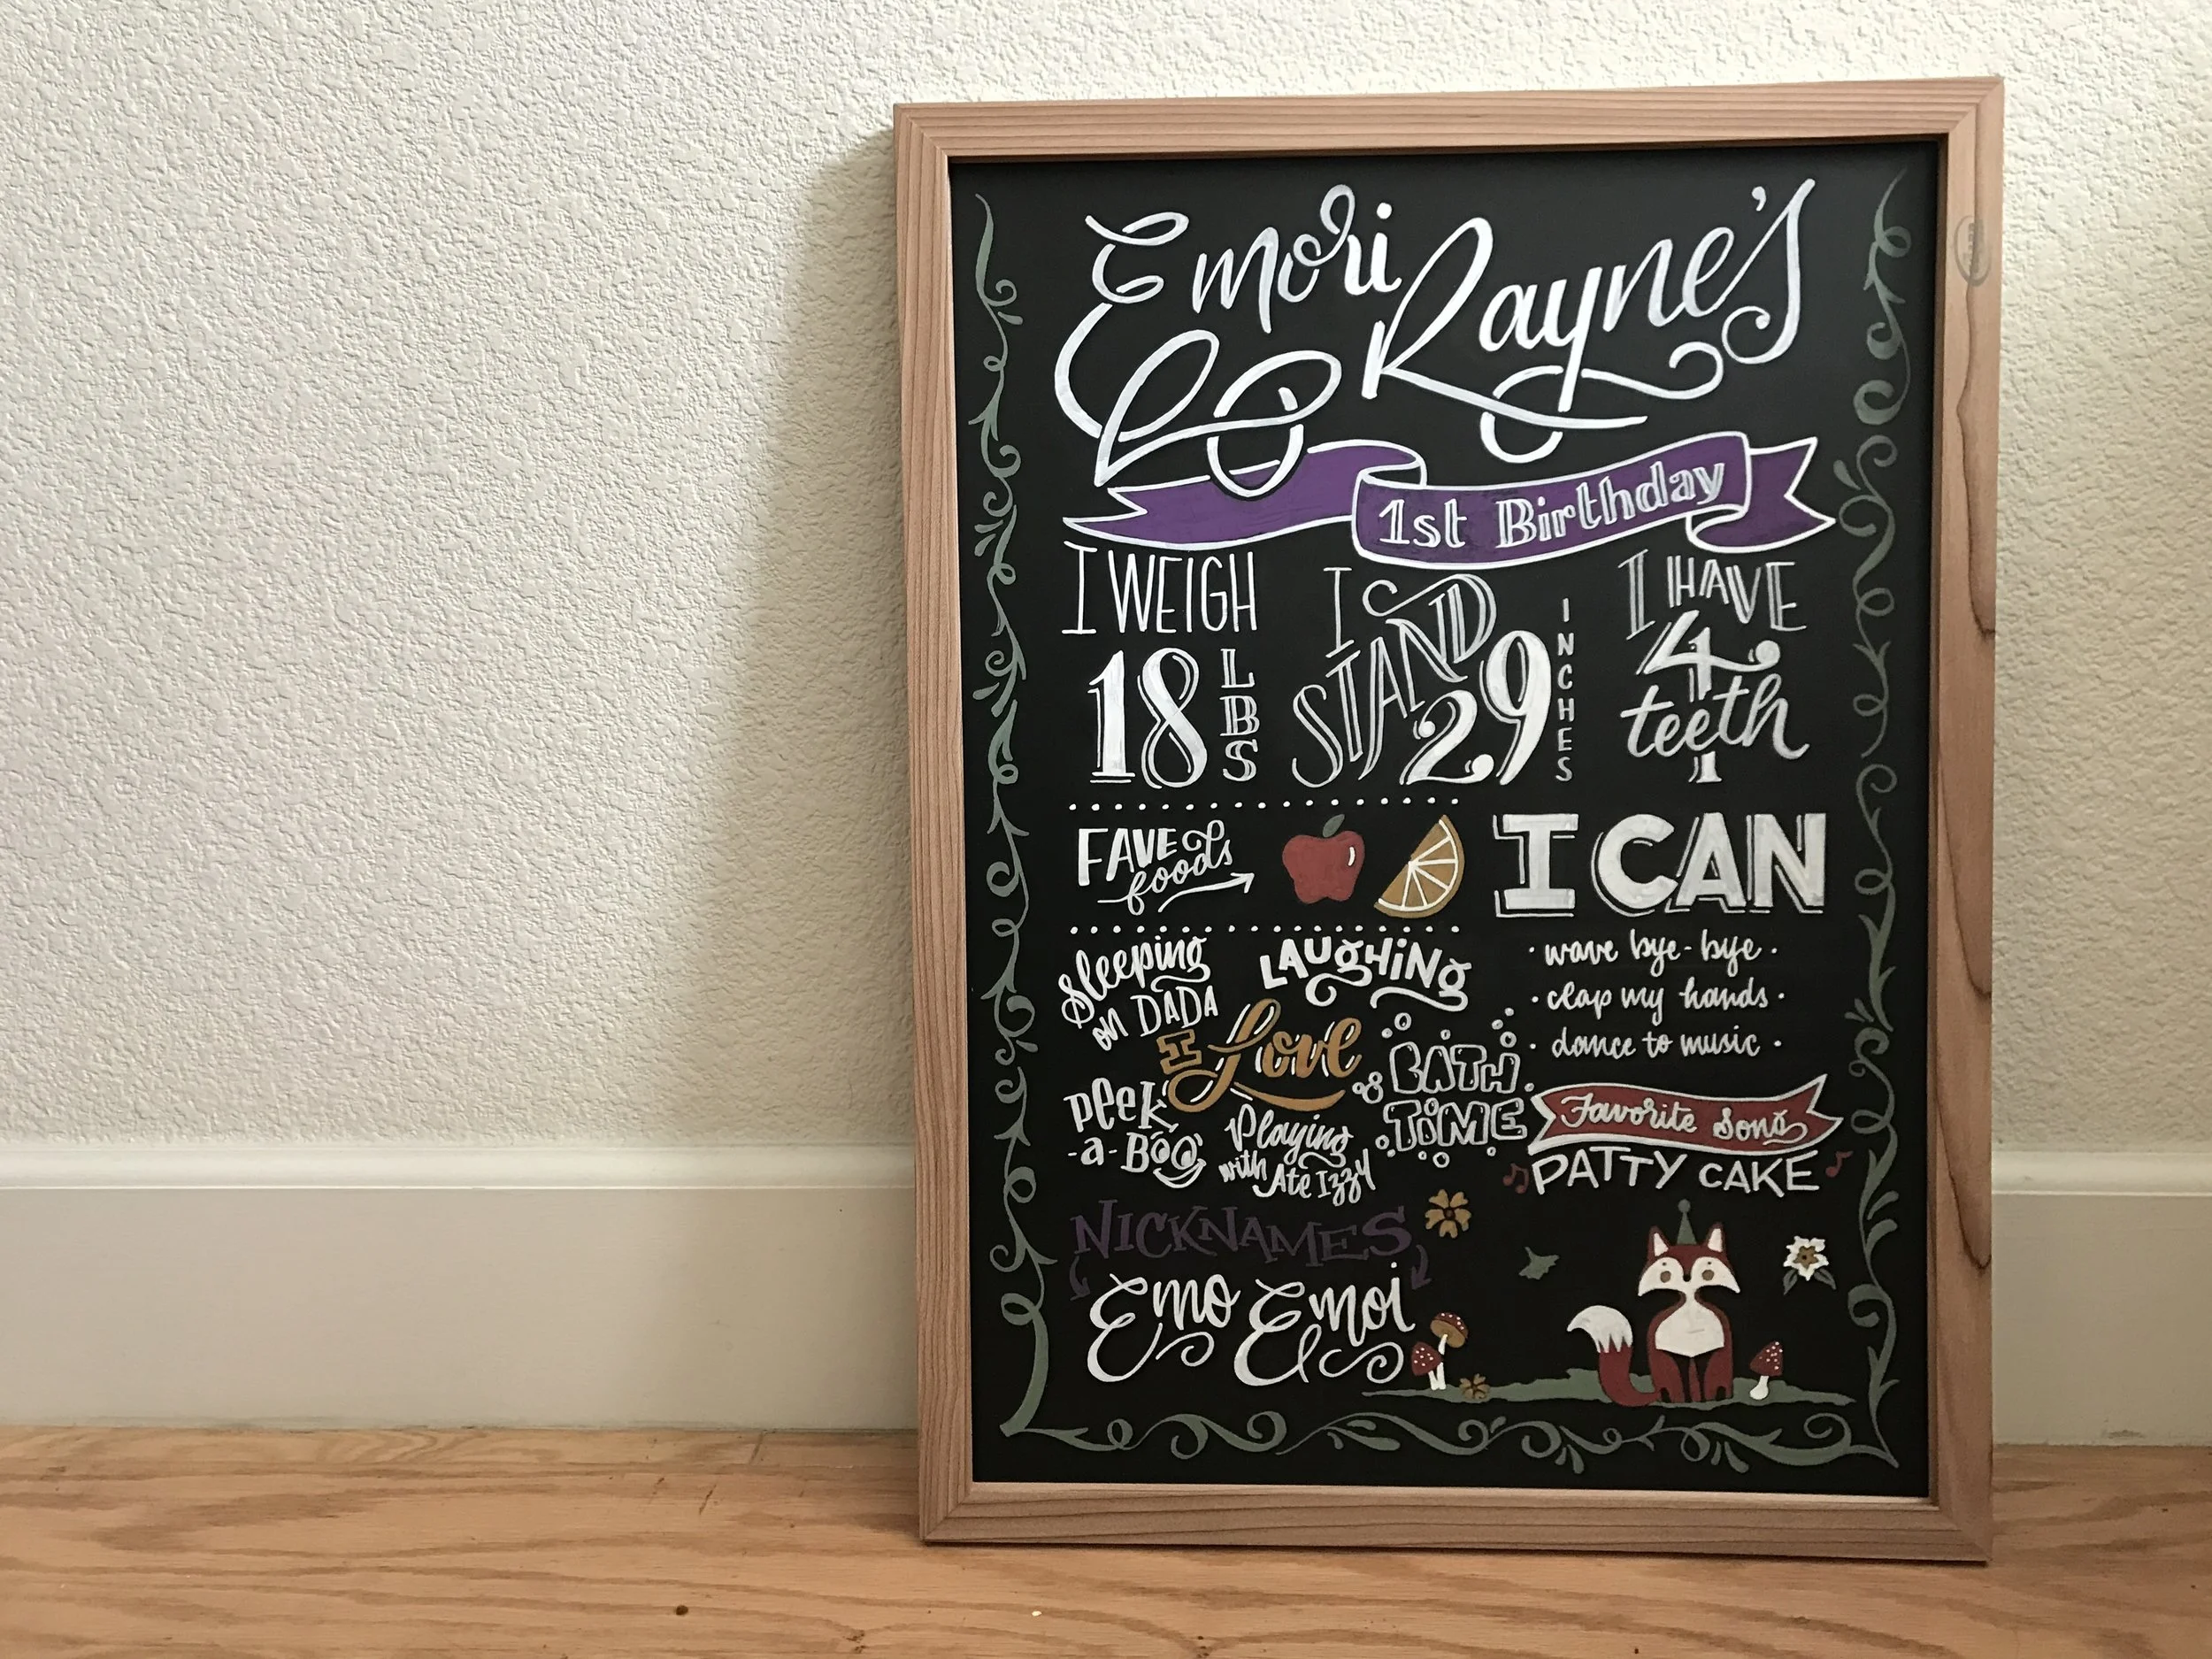 Emori Rayne's
1st Birthday
I WEIGH
18 LBS
I STAND
29 INCHES
I HAVE
4
teeth
FAVE
foods
I CAN
· wave bye-bye ·
· clap my hands ·
· dance to music ·
Sleeping
on DADA
LAUGHING
I Love
BATH
TIME
Peek
-a-Boo
Playing
with Ate Izzy
Favorite Song
PATTY CAKE
NICKNAMES
Emo Emoi